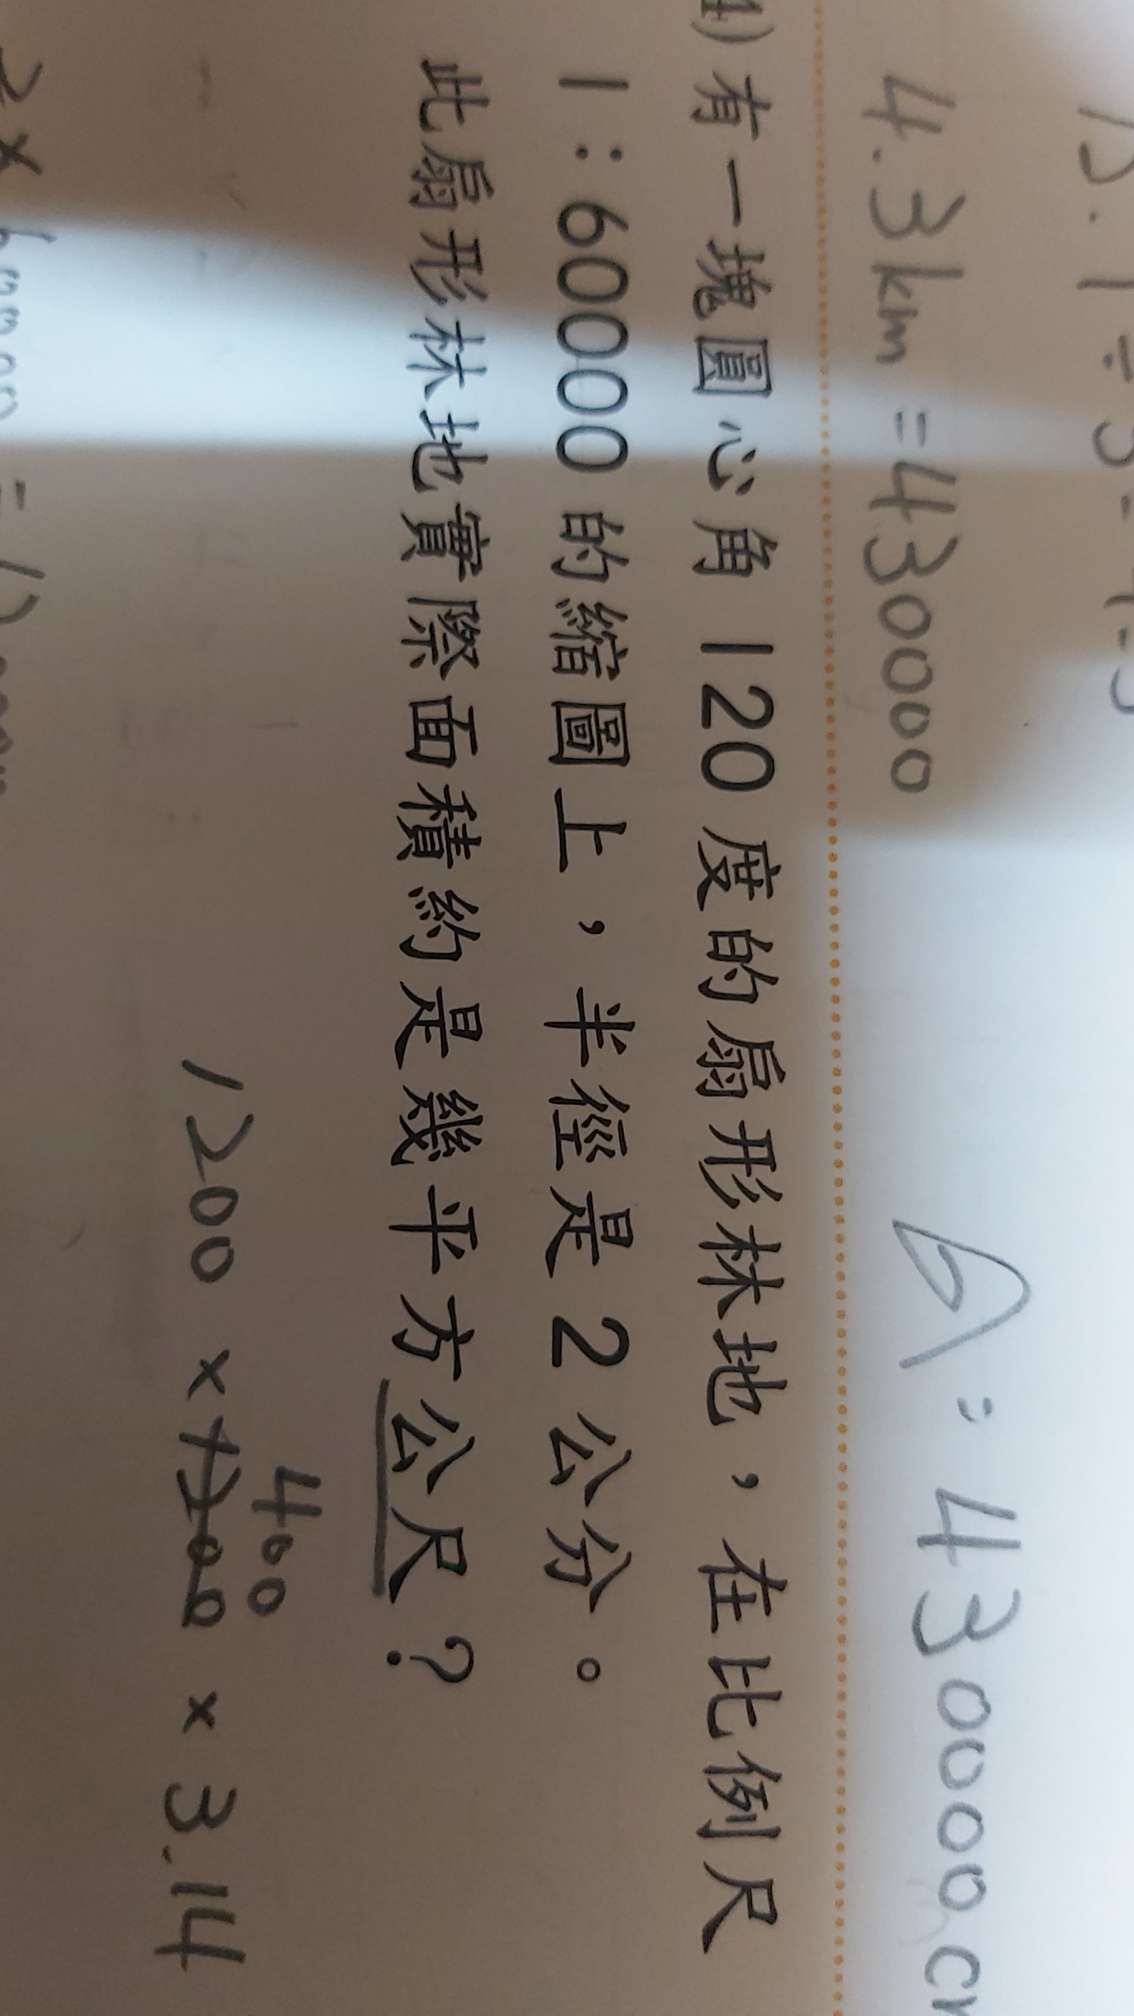 4.3km=430000
A:430000c
1) 有一塊圓心角 120 度的扇形林地，在比例尺
1：60000 的縮圖上，半徑是 2 公分。
此扇形林地實際面積約是幾平方公尺？
400
1200 × 1200 × 3.14